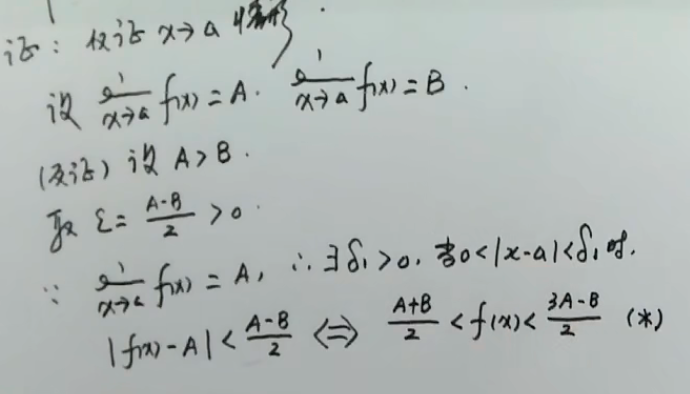 证：仅证 x→a 情形.
设 lim x→a f(x)=A. lim x→a f(x)=B.
(反证) 设 A>B.
取 ε= (A-B)/2 >0.
∵ lim x→a f(x)=A, ∴ ∃δ₁>0, 当0<|x-a|<δ₁时,
|f(x)-A|< (A-B)/2 ⟺ (A+B)/2 <f(x)< (3A-B)/2 (*)